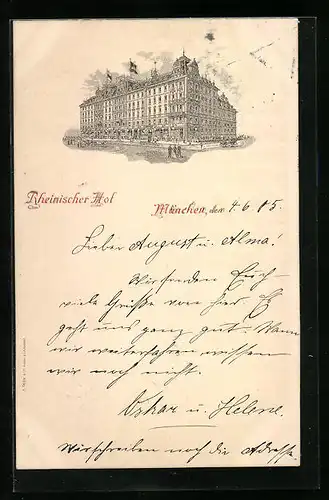 Rheinischer Hof
München, den 4. 6. 05.
Lieber August u. Alma!
Wir senden Euch
viele Grüße von hier. Es
geht uns ganz gut. Wann
wir weiterfahren wissen
wir noch nicht.
Oskar u. Helene.
Wir schreiben noch die Adresse.